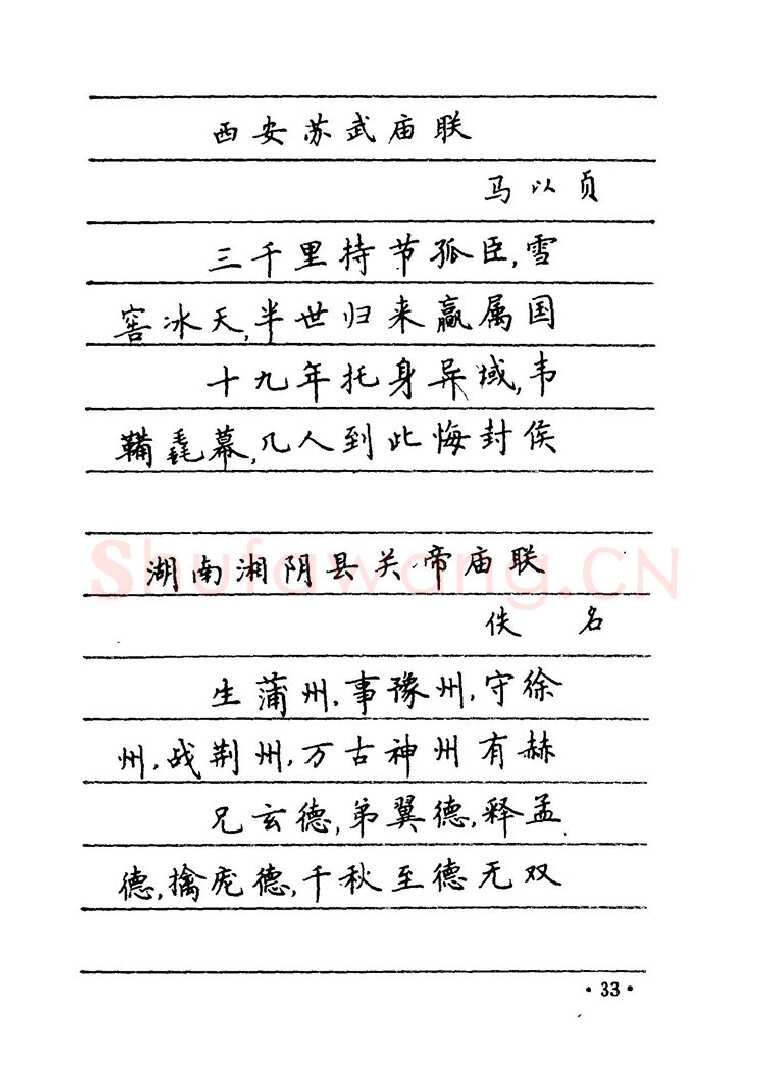 西安苏武庙联
马以贞
三千里持节孤臣,雪
窖冰天,半世归来赢属国
十九年托身异域,韦
鞲毳幕,几人到此悔封侯
湖南湘阴县关帝庙联
佚 名
生蒲州,事豫州,守徐
州,战荆州,万古神州有赫
兄玄德,弟翼德,释孟
德,擒庞德,千秋至德无双
·33·
Shufawang.CN